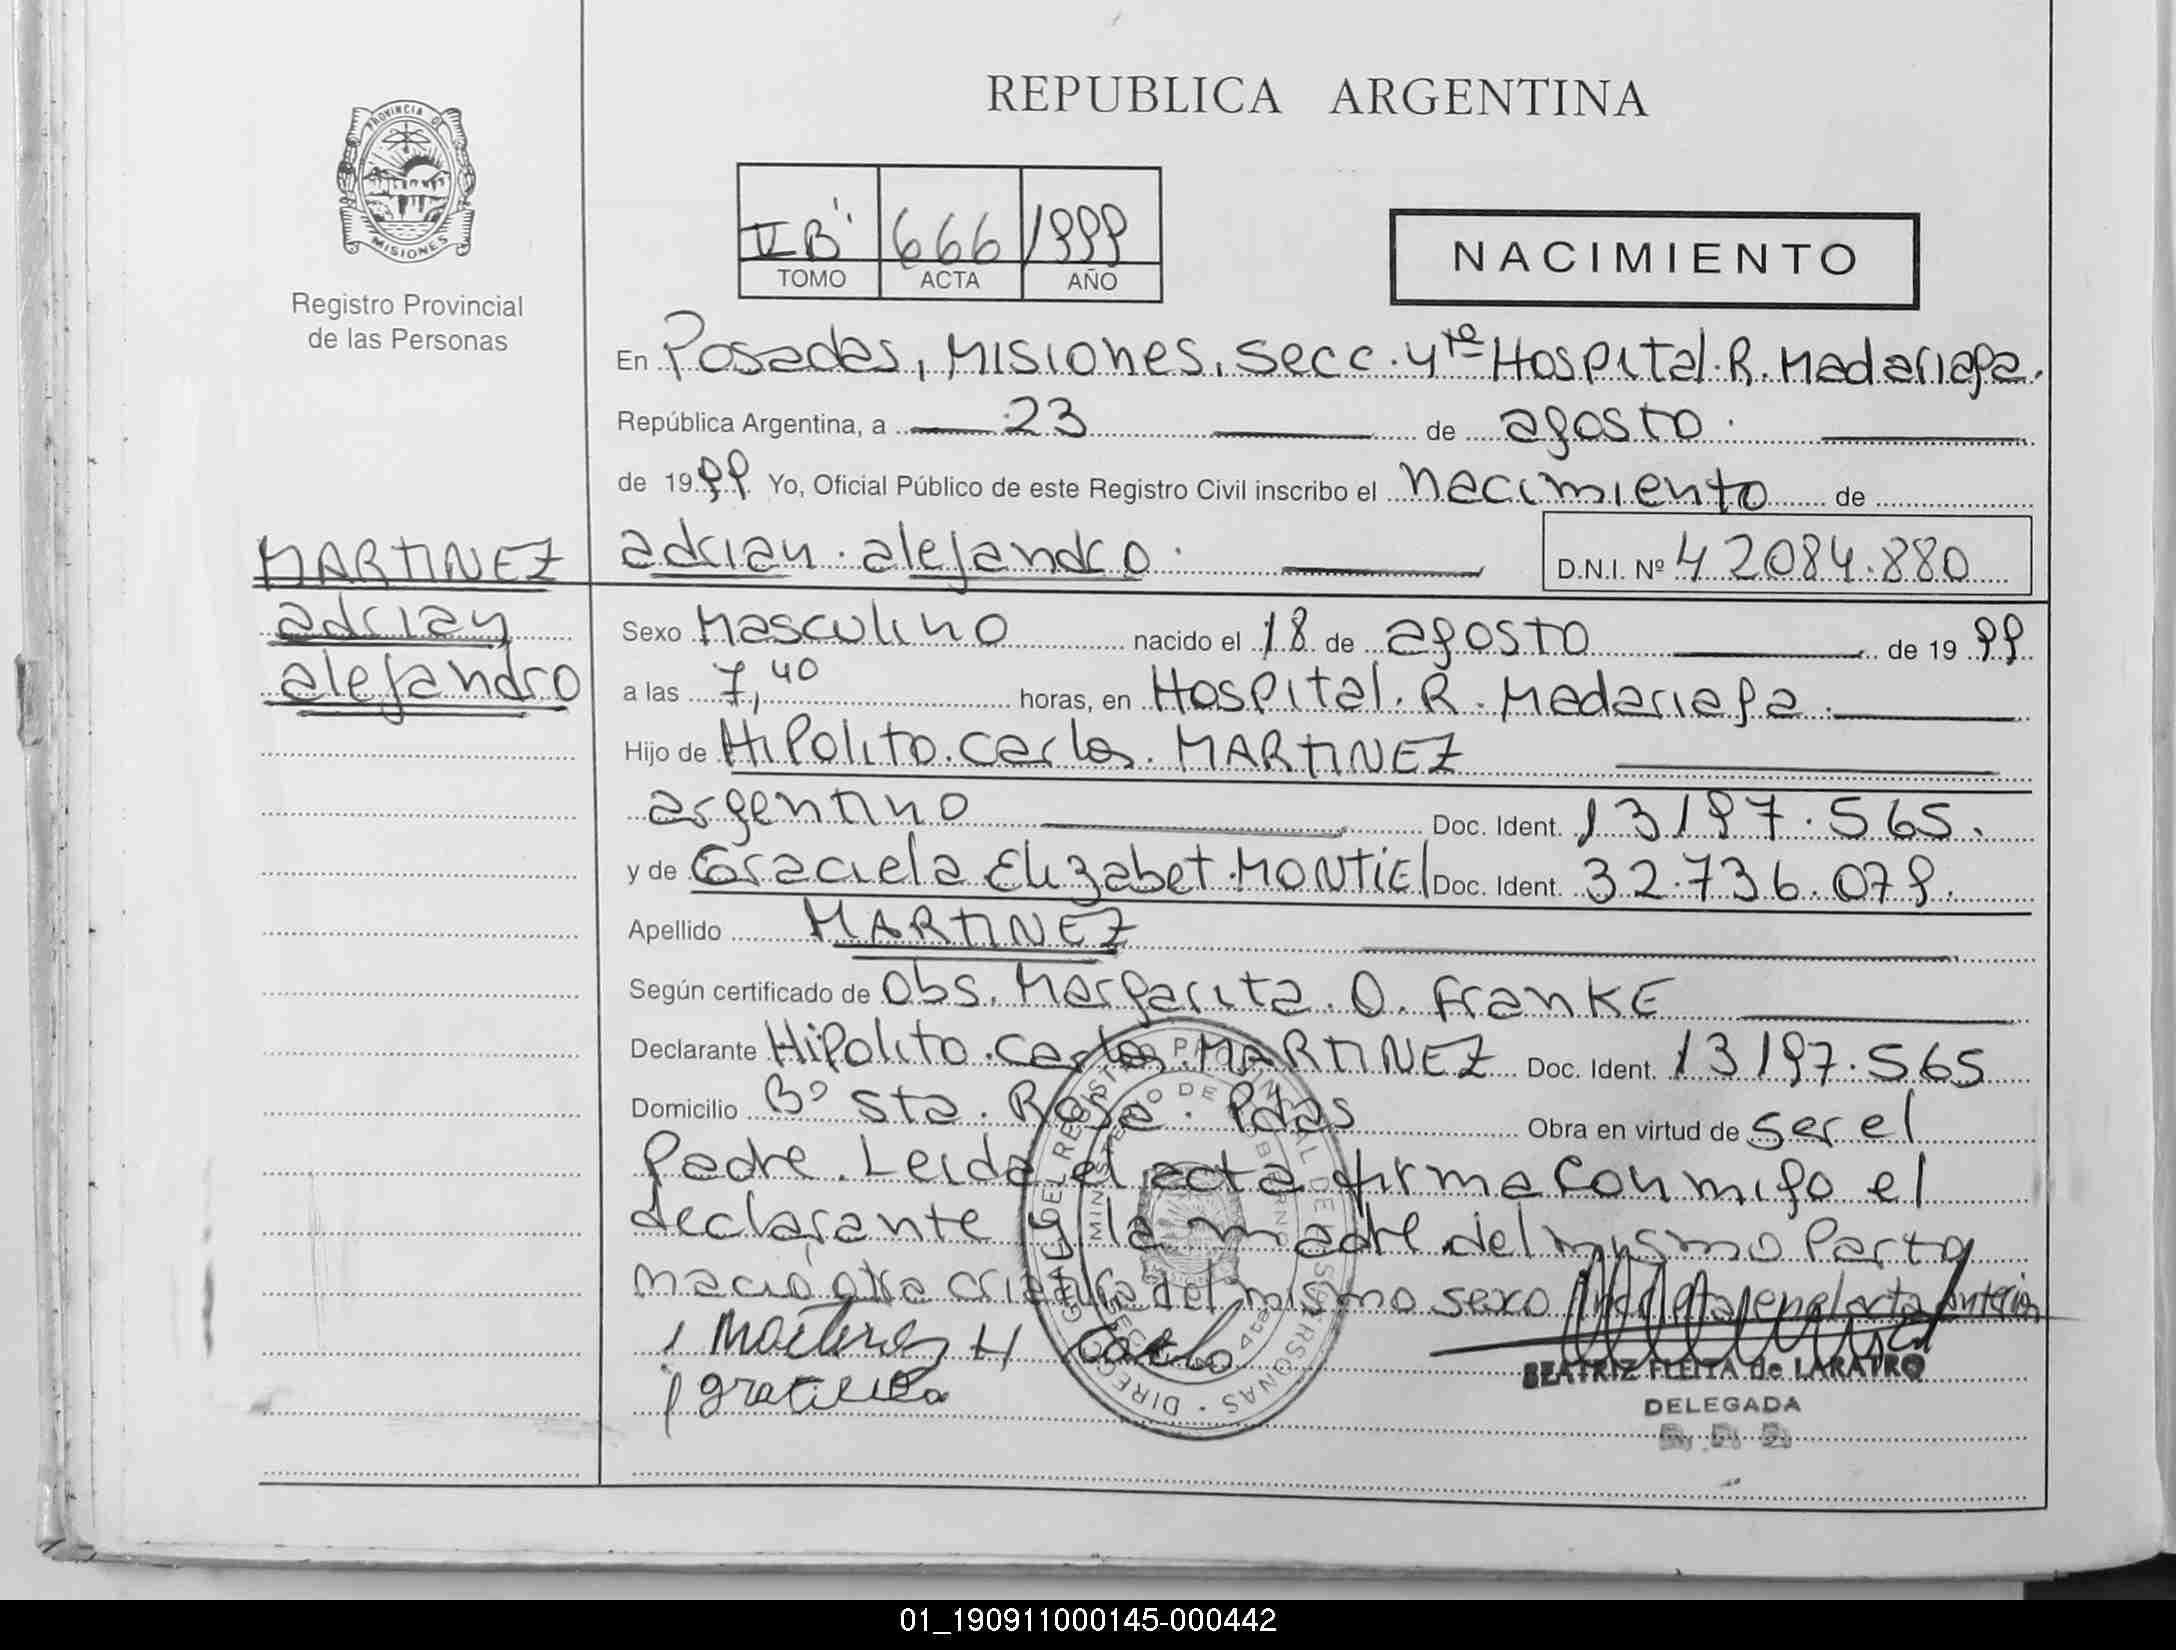 REPUBLICA ARGENTINA
PROVINCIA DE
MISIONES
Registro Provincial
de las Personas
II B' 666 1999
TOMO ACTA AÑO
NACIMIENTO
En Posadas, Misiones, secc. 4ta Hospital. R. Madariaga.
República Argentina, a 23 de agosto.
de 1999 Yo, Oficial Público de este Registro Civil inscribo el nacimiento de
MARTINEZ
adrian
alejandro
adrian. alejandro. D.N.I. Nº 42084.880
Sexo Masculino nacido el 18 de agosto de 1999
a las 7,40 horas, en Hospital. R. Madariaga.
Hijo de Hipolito. Carlos. MARTINEZ
argentino Doc. Ident. 13197.565.
y de Graciela Elizabet. MONTIEL Doc. Ident. 32.736.079.
Apellido MARTINEZ
Según certificado de Obs. Margarita. O. FranKE
Declarante Hipolito. Carlos. MARTINEZ Doc. Ident. 13197.565
Domicilio Bº sta. Rosa. Pdas Obra en virtud de ser el
Padre. Leida el acta firma conmigo el
declarante y la madre. del mismo Parto
nacio otra criatura del mismo sexo anterior
Martinez H Carlo
BEATRIZ FLEITA de LARATRO
DELEGADA
01_190911000145-000442